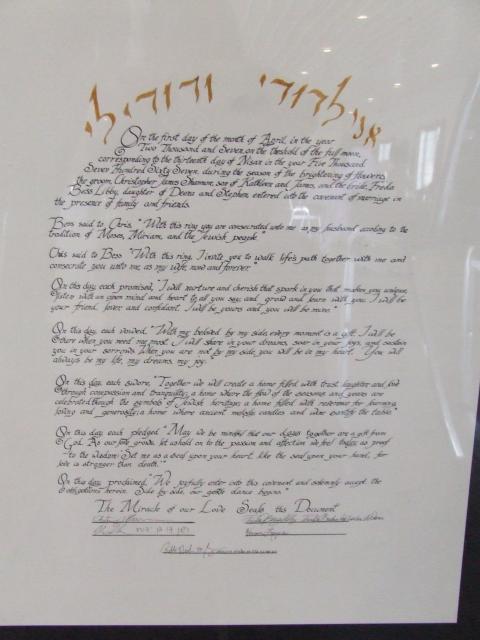 אני לדודי ודודי לי
On the first day of the month of April, in the year
Two Thousand and Seven, on the threshold of the full moon,
corresponding to the thirteenth day of Nisan in the year Five Thousand
Seven Hundred Sixty Seven, during the season of the brightening of flowers,
the groom, Christopher James Shannon, son of Kathleen and James, and the bride, Freda
Bess Libby, daughter of Deena and Stephen, entered into the covenant of marriage in
the presence of family and friends.
Bess said to Chris, "With this ring you are consecrated unto me as my husband according to the
tradition of Moses, Miriam, and the Jewish people."
Chris said to Bess "With this ring, I invite you to walk life's path together with me and
consecrate you unto me, as my wife, now and forever."
On this day each promised, "I will nurture and cherish that spark in you that makes you unique,
listen with an open mind and heart to all you say, and grow and learn with you. I will be
your friend, lover and confidant. I will be yours and you will be mine."
On this day each vowed, "With my beloved by my side, every moment is a gift. I will be
there when you need me most. I will share in your dreams, in your joys, and sustain
you in your sorrows. When you are not by my side, you will be in my heart. You will
always be my life, my dreams, my joy."
On this day each swore, "Together we will create a home filled with trust, laughter and love
through compassion and tranquility; a home where the flow of the seasons and years are
celebrated through the symbols of Jewish heritage; a home filled with reverence for learning,
loving and generosity; a home where ancient melody, candles and wine sanctify the table."
On this day each pledged "May we be mindful that our days together are a gift from
God. As our love grows, let us hold on to the passion and affection we feel today, as proof
to the wisdom: Set me as a seal upon your heart, like the seal upon your hand, for
love is stronger than death."
On this day, proclaimed, "We joyfully enter into this covenant and solemnly accept the
obligations herein. Side by side, our gentle dance begins."
The Miracle of our Love Seals this Document